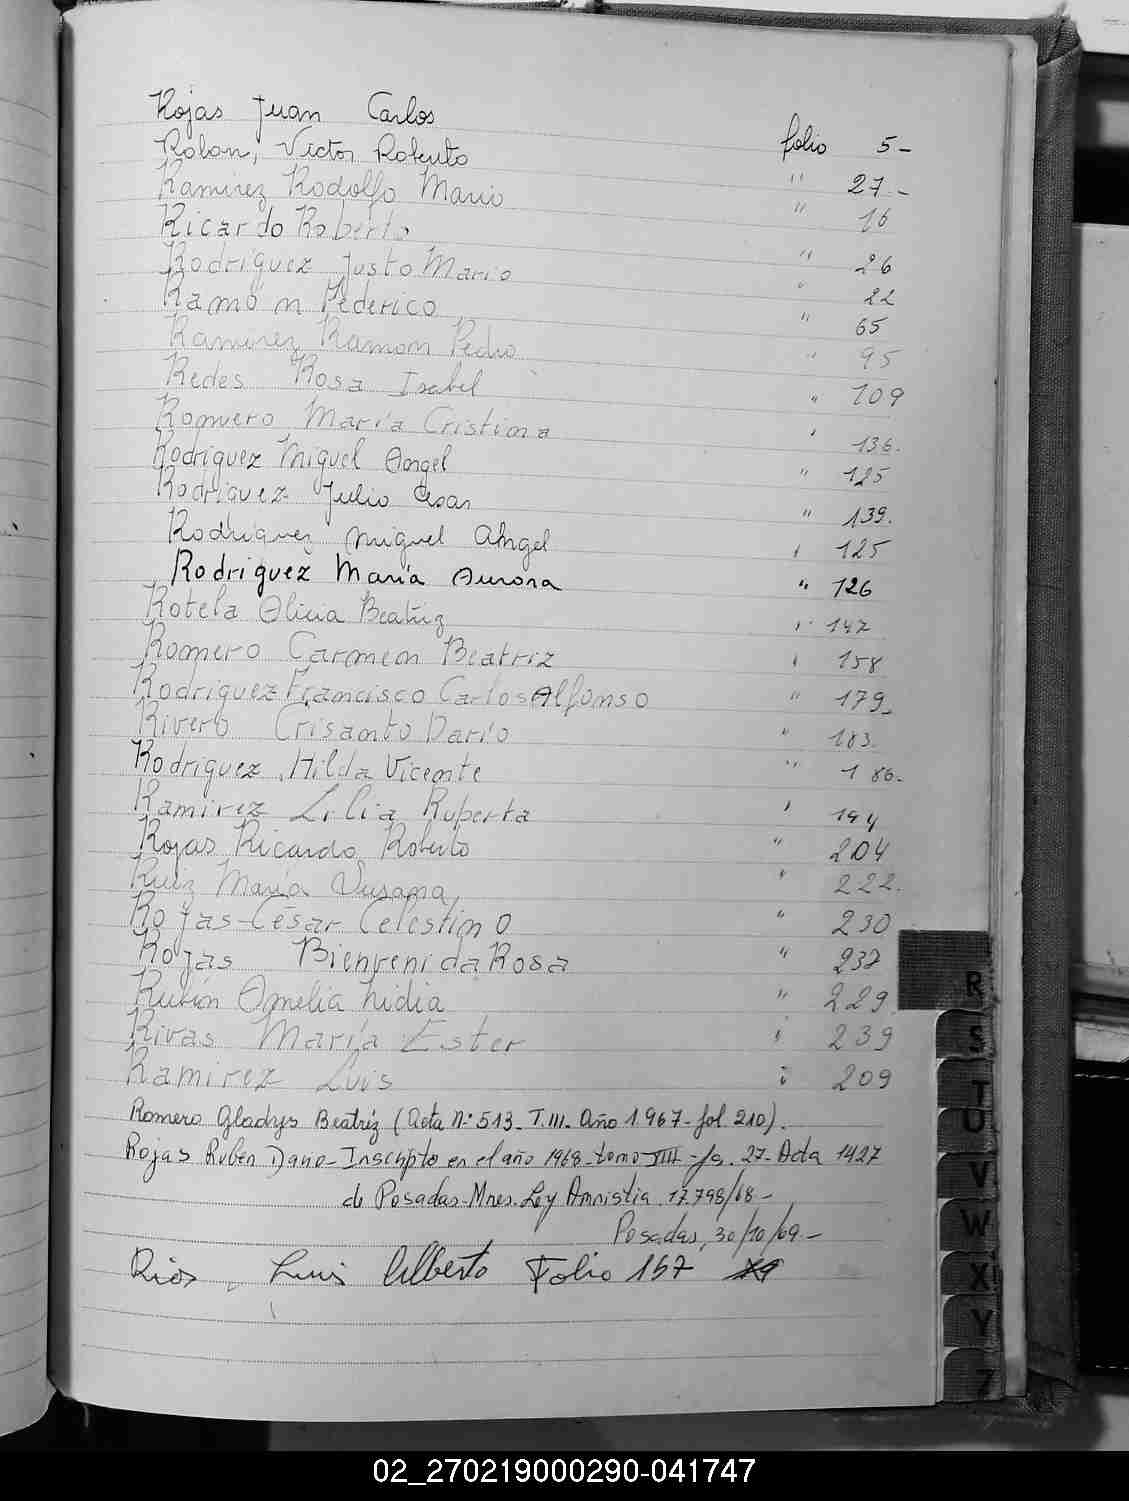 Rojas Juan Carlos folio 5-
Rolon, Victor Roberto " 27-
Ramirez Rodolfo Mario " 16
Ricardo Roberto " 26
Rodriguez Justo Mario " 22
Ramón Federico " 65
Ramirez Ramon Pedro " 95
Redes Rosa Isabel " 109
Romero María Cristina " 136.
Rodriguez Miguel Angel " 125
Rodriguez Julio Cesar " 139.
Rodriguez Miguel Angel " 125
Rodriguez María Aurora " 126
Rotela Alicia Beatriz " 147
Romero Carmen Beatriz " 158
Rodriguez Francisco Carlos Alfonso " 179-
Rivero Crisanto Darío " 183.
Rodriguez Hilda Vicente " 186-
Ramirez Lilia Ruperta " 194
Rojas Ricardo Roberto " 204
Ruiz María Susana " 222.
Rojas-César Celestino " 230
Rojas Bienvenida Rosa " 237
Rubín Amelia Nidia " 229
Rivas María Ester " 239
Ramirez Luis " 209
Romero Gladys Beatriz (Acta Nº 513- T.III- Año 1.967- fol. 210).
Rojas Ruben Dario- Inscripto en el año 1968- tomo IIII- fs. 27- Acta 1427
de Posadas-Mnes. Ley Amnistia. 17.798/68-
Posadas, 30/10/69.-
Rios, Luis Alberto Folio 157
R
S
T
U
V
W
X
Y
Z
02_270219000290-041747